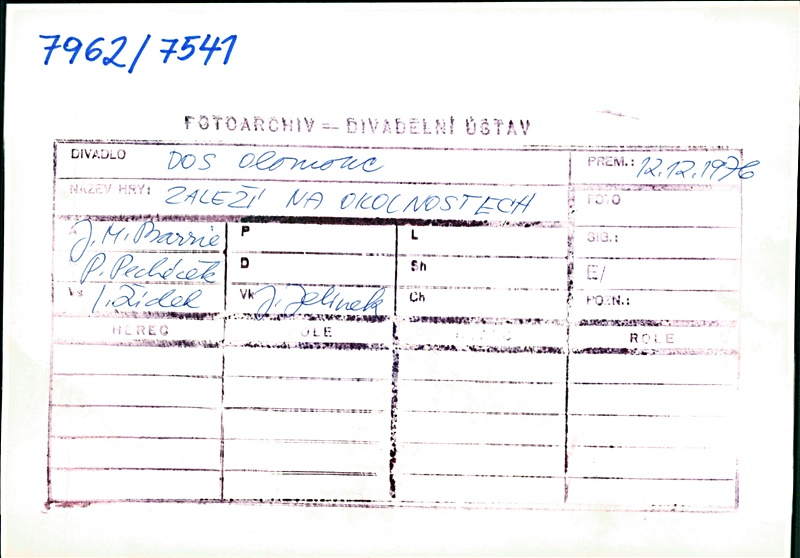 7962/7541
FOTOARCHIV — DIVADELNÍ ÚSTAV
DIVADLO DOS OLOMOUC PREM.: 12.12.1976
NÁZEV HRY: ZALEŽÍ NA OKOLNOSTECH FOTO
J. M. Barrie P L SIG.:
P. Pecháček D Sh E/
Vs I. Žídek Vk J. Jelinek Ch POZN.:
HEREC ROLE